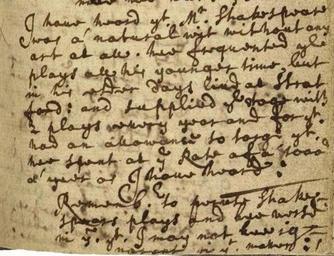 I have heard yt. Mr. Shakespeare
was a natural wit without any
art at all. hee frequented ye
plays all his younger time, but
in his elder days lived at Strat
ford: and supplied ye stage with
2 plays every year and for yt.
had an allowance so large yt.
hee spent at ye Rate of a 1000l
a year as I have heard.
Rememb. to peruse Shake-
spears plays and bee versd
in ym. yt. I may not bee ig-
norant in yt. matter: